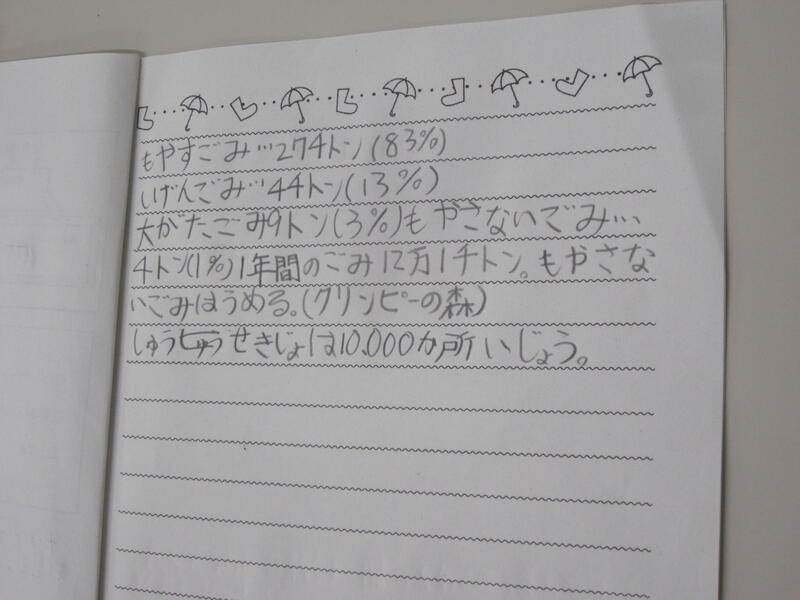 もやすごみ…274トン(83%)
しげんごみ…44トン(13%)
大がたごみ9トン(3%)もやさないごみ…
4トン(1%)1年間のごみ12万1千トン。もやさな
いごみはうめる。(クリンピーの森)
しゅうせきじょは10,000か所いじょう。